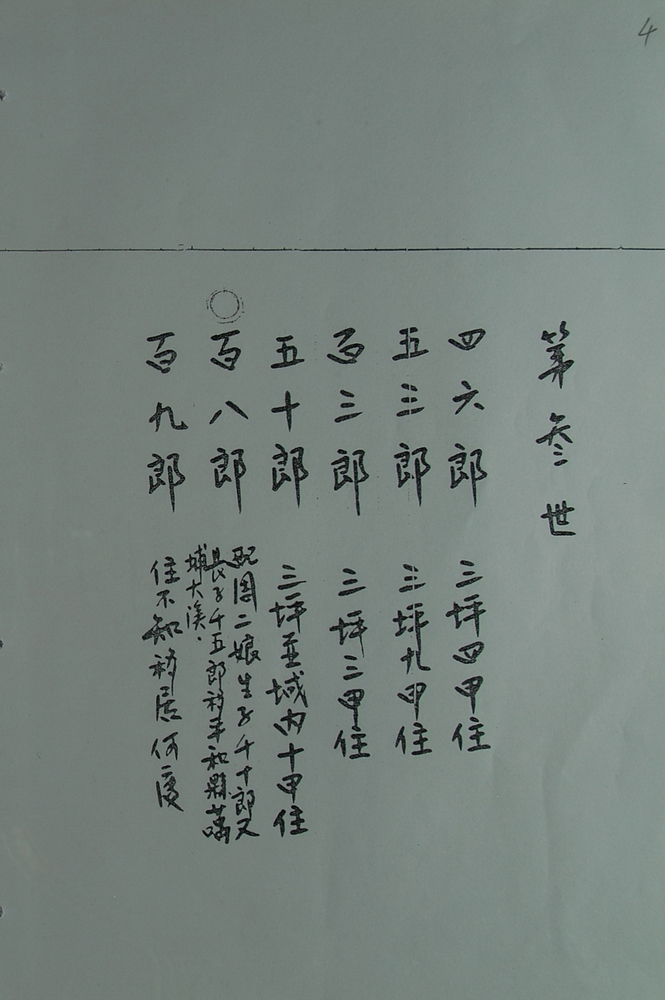 4
第叁世
四六郎 三坪四甲住
五三郎 三坪九甲住
百三郎 三坪三甲住
五十郎 三坪並城内十甲住
百八郎 配周二娘生子千十郎又
長子千五郎移平和縣蘆
埔大溪.
百九郎 住不知移居何處